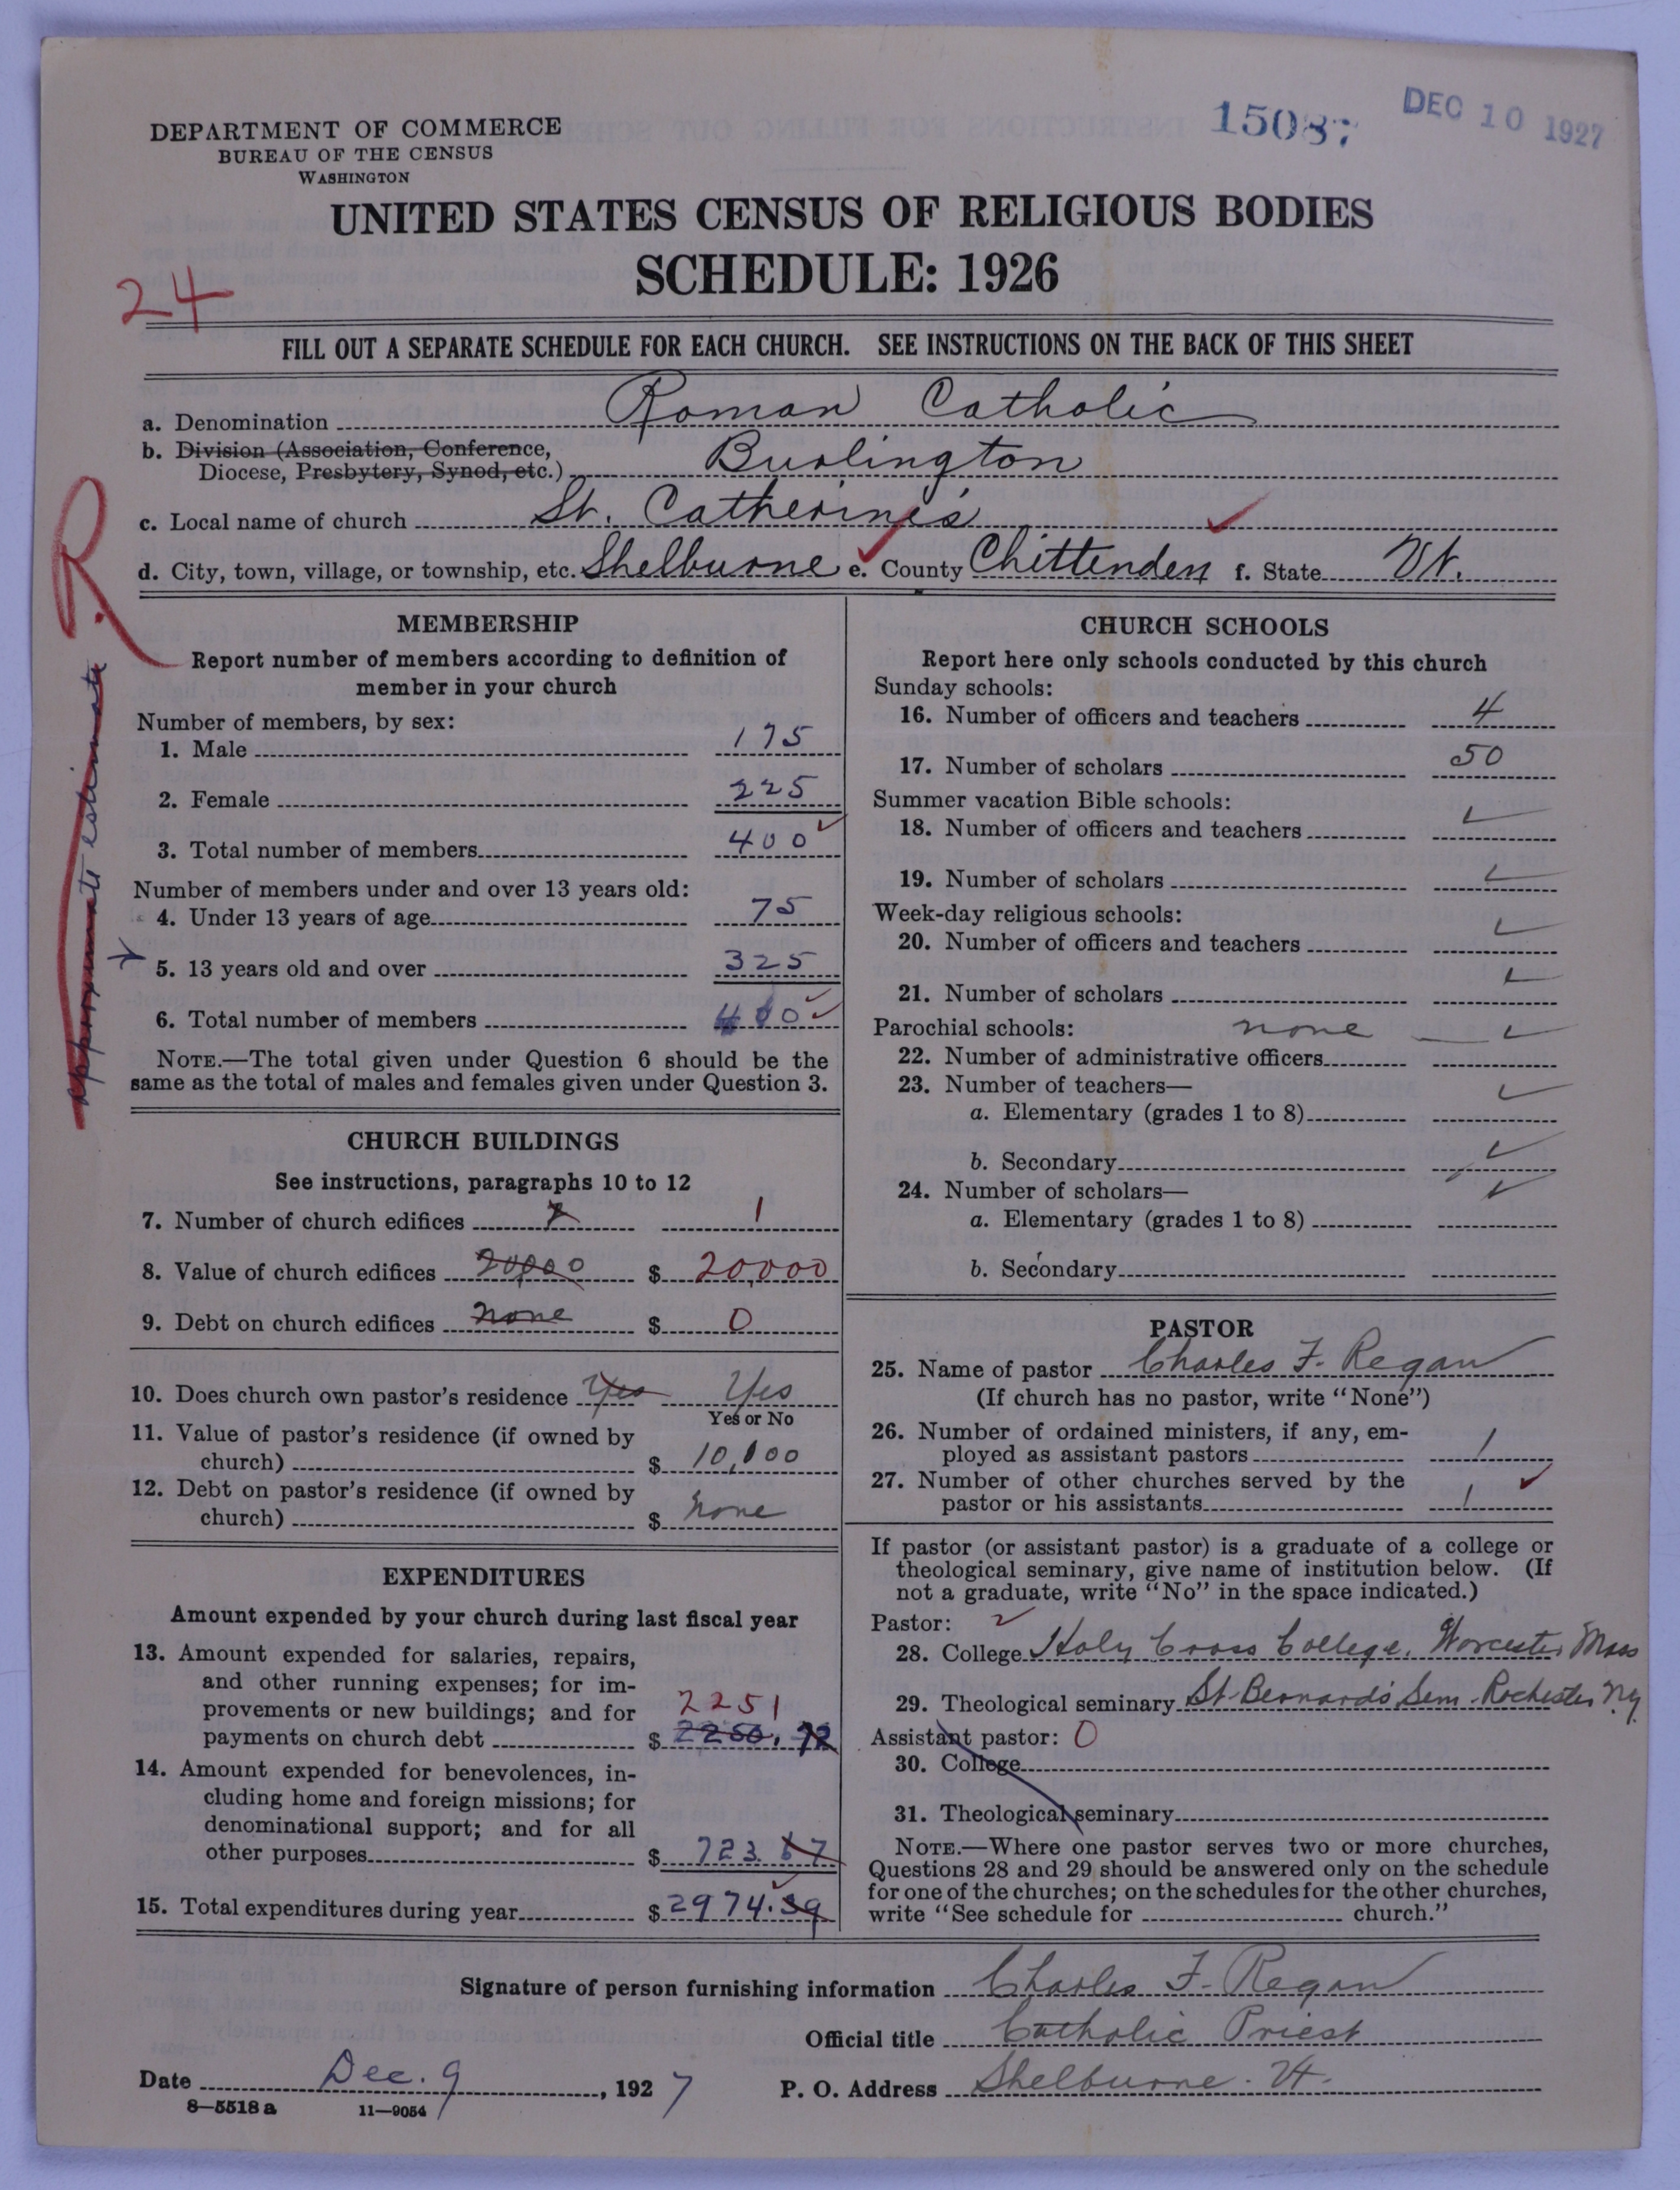 15087
DEC 10 1927
DEPARTMENT OF COMMERCE
BUREAU OF THE CENSUS
WASHINGTON
UNITED STATES CENSUS OF RELIGIOUS BODIES
SCHEDULE: 1926
24
FILL OUT A SEPARATE SCHEDULE FOR EACH CHURCH. SEE INSTRUCTIONS ON THE BACK OF THIS SHEET
a. Denomination Roman Catholic
b. Division (Association, Conference,
Diocese, Presbytery, Synod, etc.) Burlington
c. Local name of church St. Catherine's
d. City, town, village, or township, etc. Shelburne e. County Chittenden f. State Vt.
R
approximate estimate
MEMBERSHIP
Report number of members according to definition of
member in your church
Number of members, by sex:
1. Male 175
2. Female 225
3. Total number of members 400
Number of members under and over 13 years old:
4. Under 13 years of age 75
5. 13 years old and over 325
6. Total number of members 400
NOTE.—The total given under Question 6 should be the
same as the total of males and females given under Question 3.
CHURCH BUILDINGS
See instructions, paragraphs 10 to 12
7. Number of church edifices 1
8. Value of church edifices 20,000 $ 20,000
9. Debt on church edifices none $ 0
10. Does church own pastor's residence Yes Yes
Yes or No
11. Value of pastor's residence (if owned by
church) $ 10,000
12. Debt on pastor's residence (if owned by
church) $ none
EXPENDITURES
Amount expended by your church during last fiscal year
13. Amount expended for salaries, repairs,
and other running expenses; for im-
provements or new buildings; and for 2251
payments on church debt $ 2250.72
14. Amount expended for benevolences, in-
cluding home and foreign missions; for
denominational support; and for all
other purposes $ 723.67
15. Total expenditures during year $ 2974.39
CHURCH SCHOOLS
Report here only schools conducted by this church
Sunday schools:
16. Number of officers and teachers 4
17. Number of scholars 50
Summer vacation Bible schools:
18. Number of officers and teachers
19. Number of scholars
Week-day religious schools:
20. Number of officers and teachers
21. Number of scholars
Parochial schools: none
22. Number of administrative officers
23. Number of teachers—
a. Elementary (grades 1 to 8)
b. Secondary
24. Number of scholars—
a. Elementary (grades 1 to 8)
b. Secondary
PASTOR
25. Name of pastor Charles F. Regan
(If church has no pastor, write "None")
26. Number of ordained ministers, if any, em-
ployed as assistant pastors 1
27. Number of other churches served by the
pastor or his assistants 1
If pastor (or assistant pastor) is a graduate of a college or
theological seminary, give name of institution below. (If
not a graduate, write "No" in the space indicated.)
Pastor:
28. College Holy Cross College, Worcester Mass
29. Theological seminary St. Bernard's Sem. Rochester N.Y.
Assistant pastor: 0
30. College
31. Theological seminary
NOTE.—Where one pastor serves two or more churches,
Questions 28 and 29 should be answered only on the schedule
for one of the churches; on the schedules for the other churches,
write "See schedule for church."
Signature of person furnishing information Charles F. Regan
Official title Catholic Priest
Date Dec. 9, 1927 P. O. Address Shelburne. Vt.
8—5518 a 11—9054